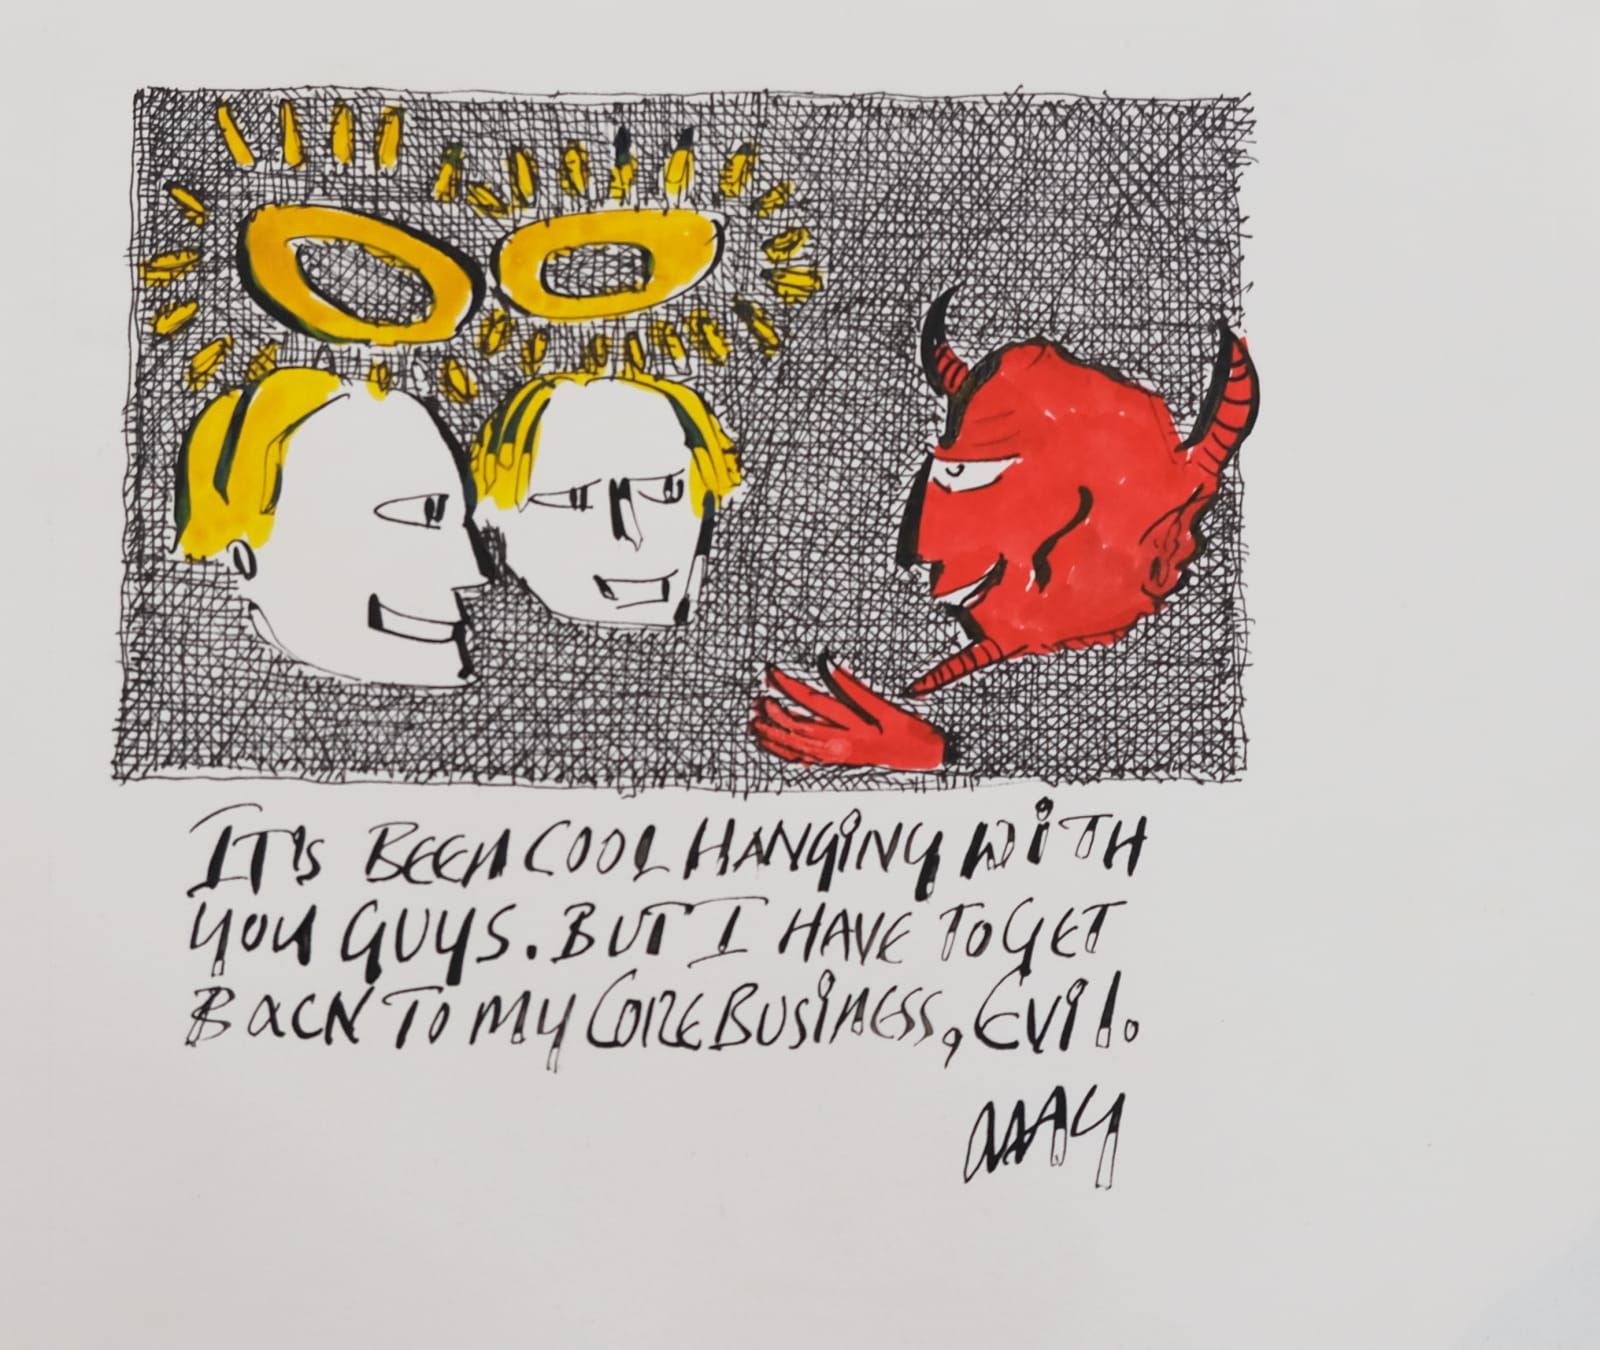 IT'S BEEN COOL HANGING WITH
YOU GUYS. BUT I HAVE TO GET
BACK TO MY CORE BUSINESS, EVIL.
MAY